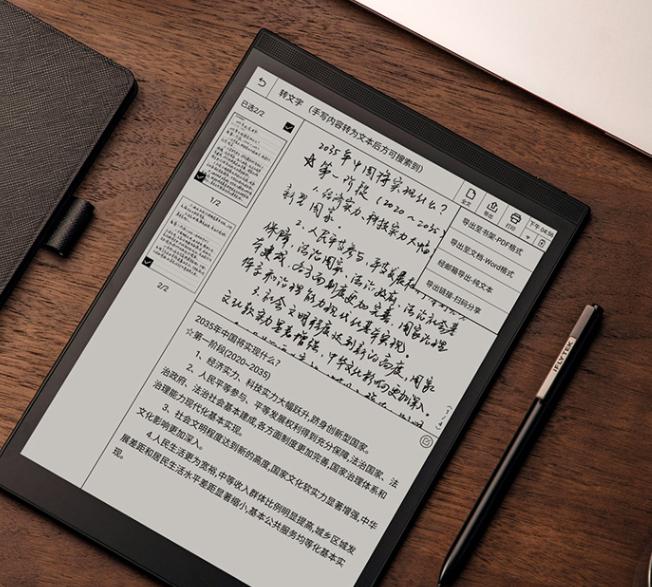 转文字 (手写内容转为文本后方可搜索到)
已选2/2
1/2
2/2
全文
导出
打印
下午 04:56
导出至书架-PDF格式
导出至文档-Word格式
经邮箱导出-纯文本
导出链接-扫码分享
2035年中国将实现什么?
☆第一阶段 (2020~2035)
1.经济实力、科技实力大幅
新型国家。
2.人民平等参与、平等发展
保障,法治国家、法治政府、法治社会基
本建成,各方面制度更加完善,国家治理
体系和治理能力现代化基本实现。
3.社会文明程度达到新的高度,国家
文化软实力显著增强,中华文化影响更加深入。
2035年中国将实现什么?
☆第一阶段(2020~2035)
1、经济实力、科技实力大幅跃升,跻身创新型国家。
2、人民平等参与、平等发展权利得到充分保障,法治国家、法
治政府、法治社会基本建成,各方面制度更加完善,国家治理体系和
治理能力现代化基本实现。
3、社会文明程度达到新的高度,国家文化软实力显著增强,中华
文化影响更加深入。
4.人民生活更为宽裕,中等收入群体比例明显提高,城乡区城发
展差距和居民生活水平差距显著缩小,基本公共服务均等化基本实
现。
iFLYTEK